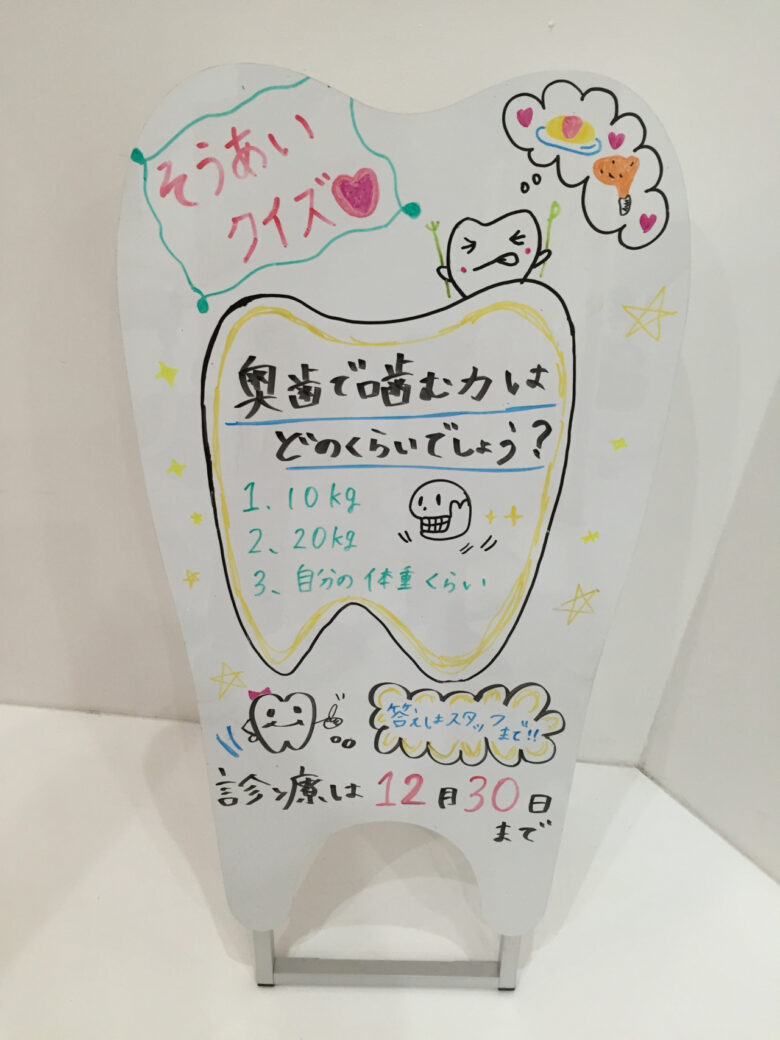 そうあい
クイズ
奥歯で噛む力は
どのくらいでしょう？
1、10kg
2、20kg
3、自分の体重くらい
答えはスタッフ
まで!!
診療は12月30日
まで